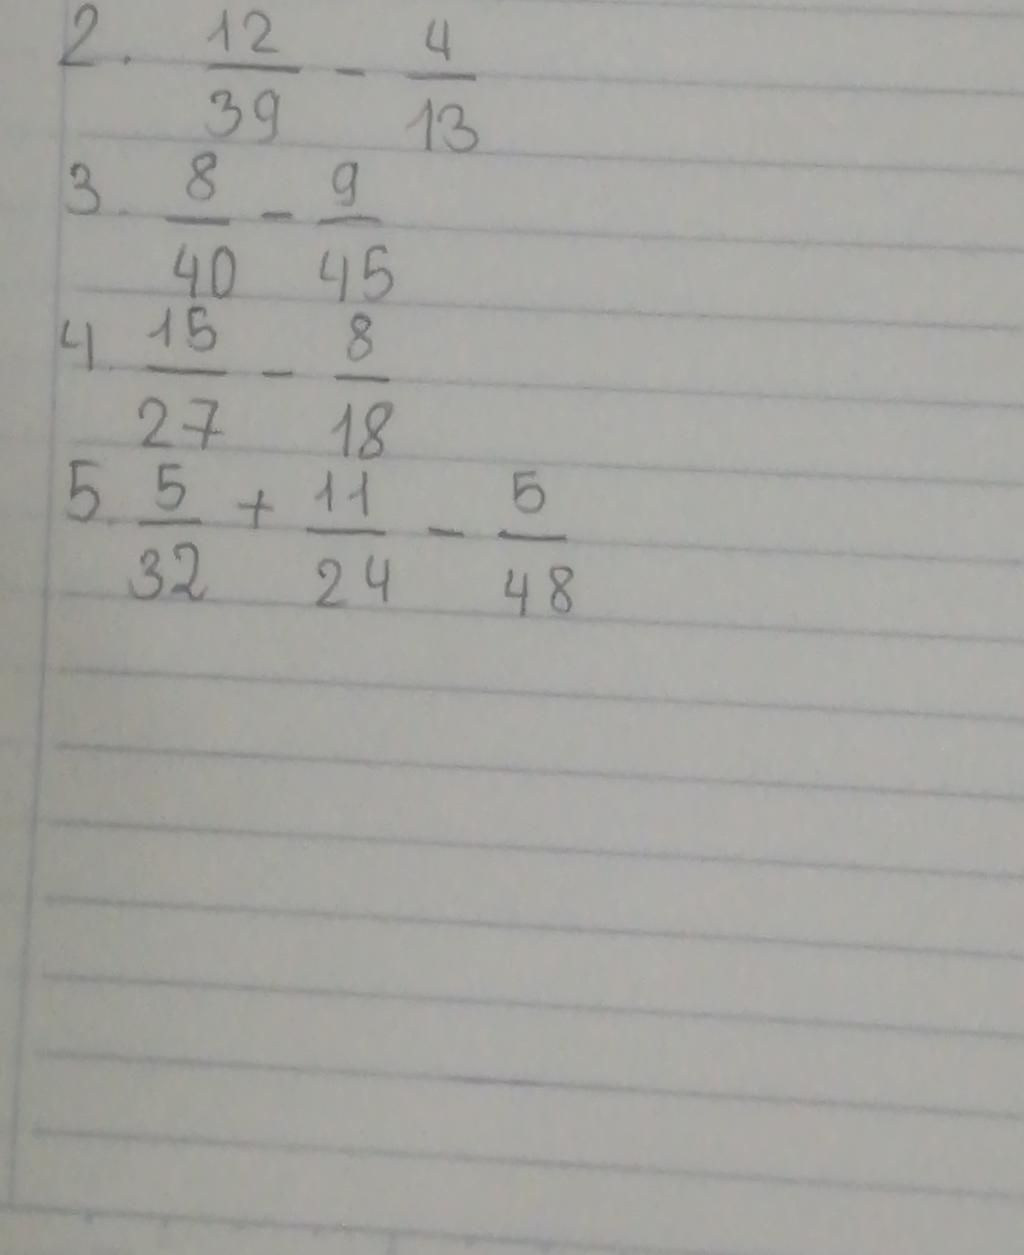 2. 12/39 - 4/13
3. 8/40 - 9/45
4. 15/27 - 8/18
5. 5/32 + 11/24 - 5/48